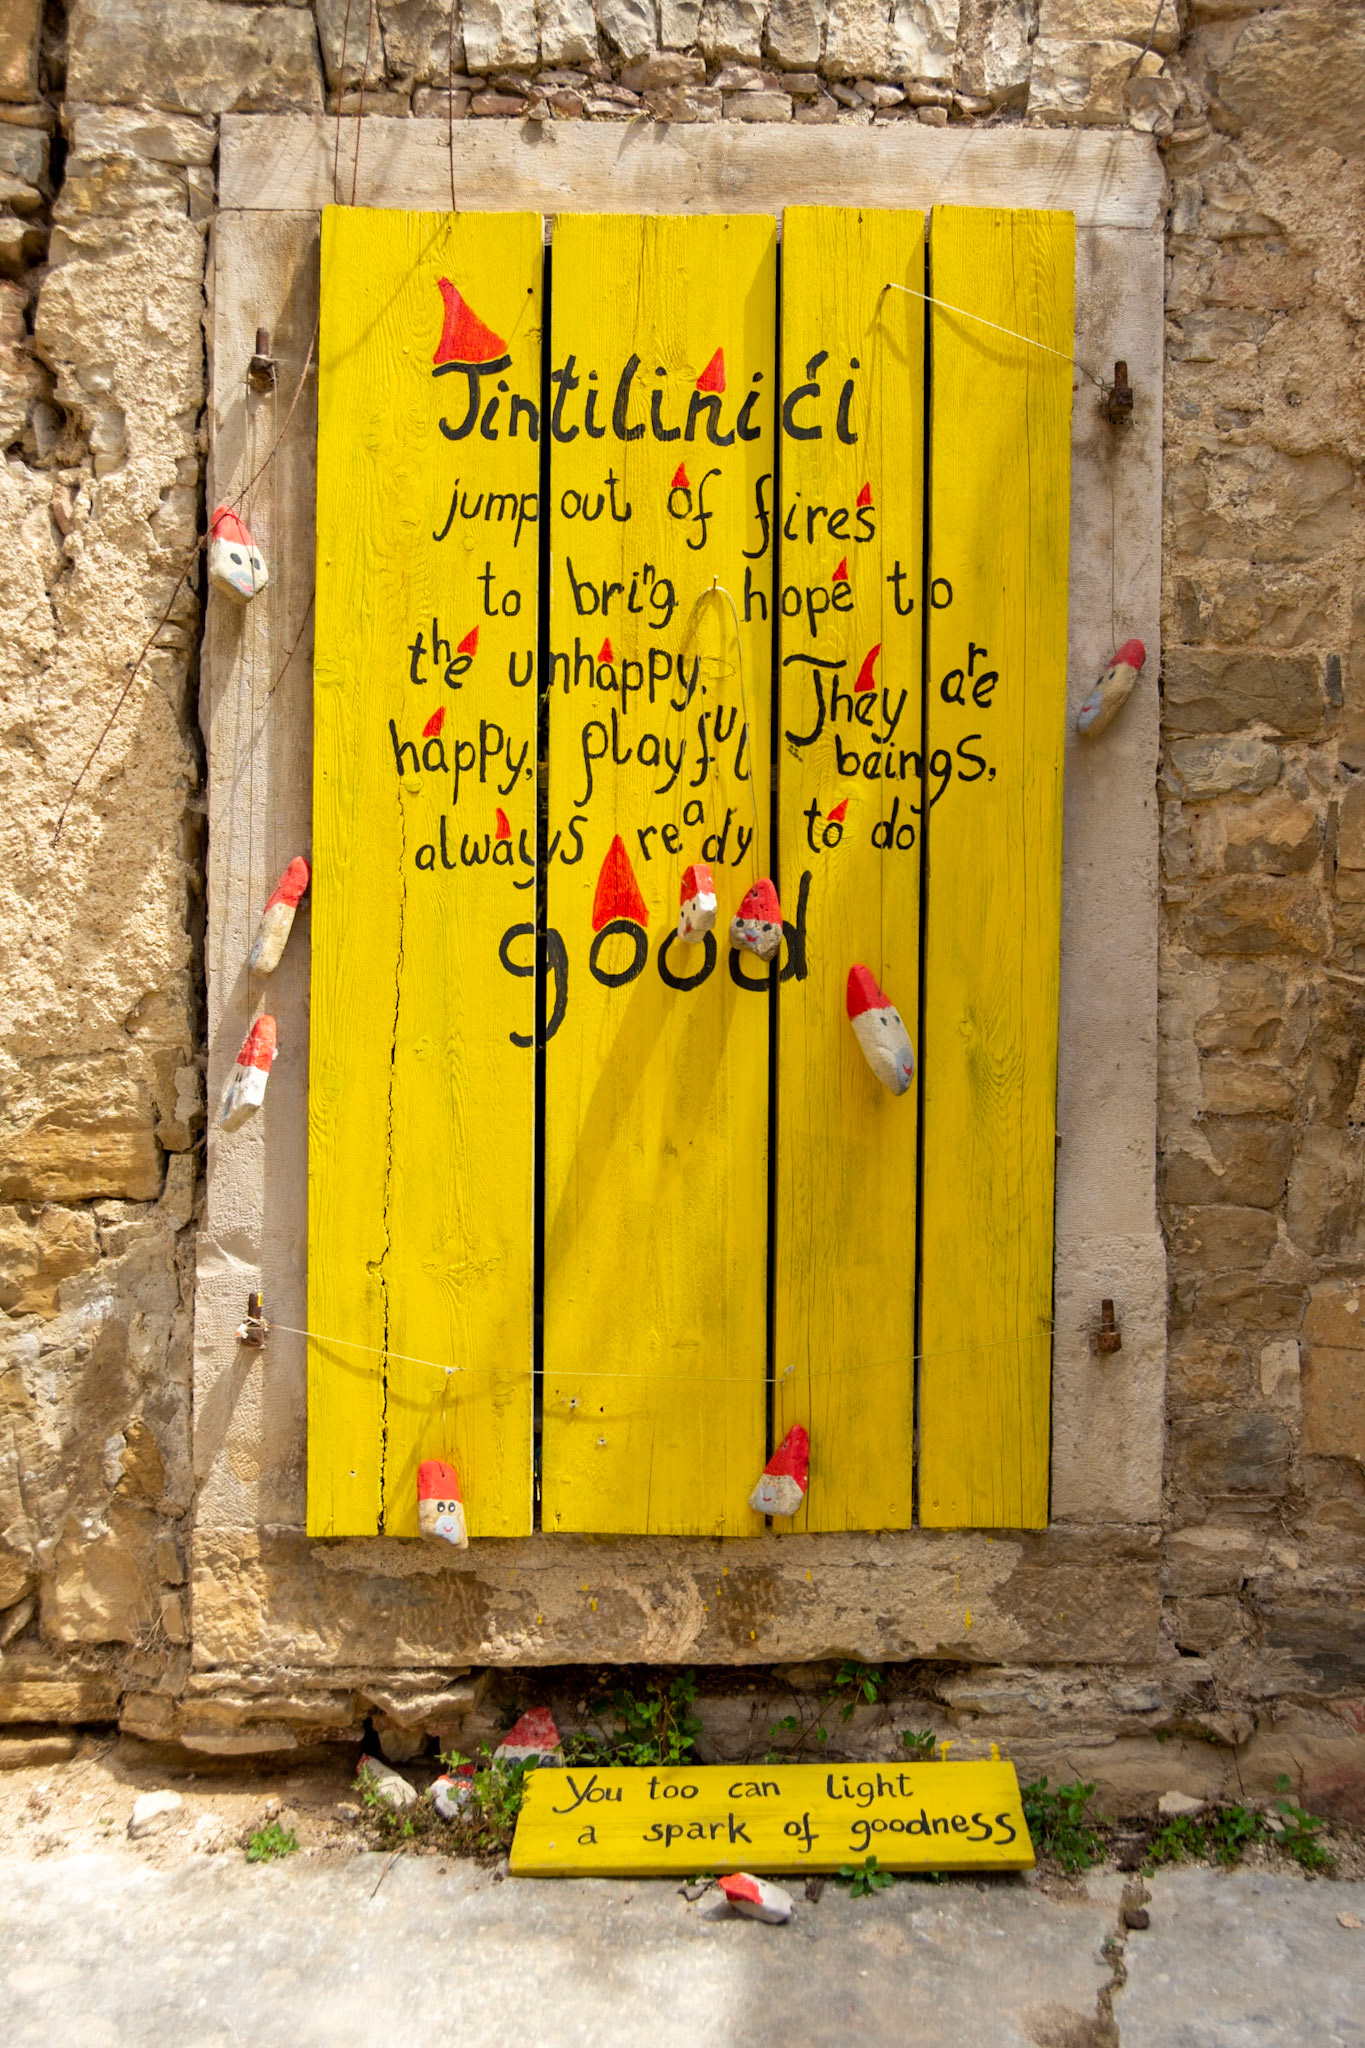 Tintilinići
jump out of fires
to bring hope to
the unhappy. They are
happy, playful beings,
always ready to do
good
You too can light
a spark of goodness